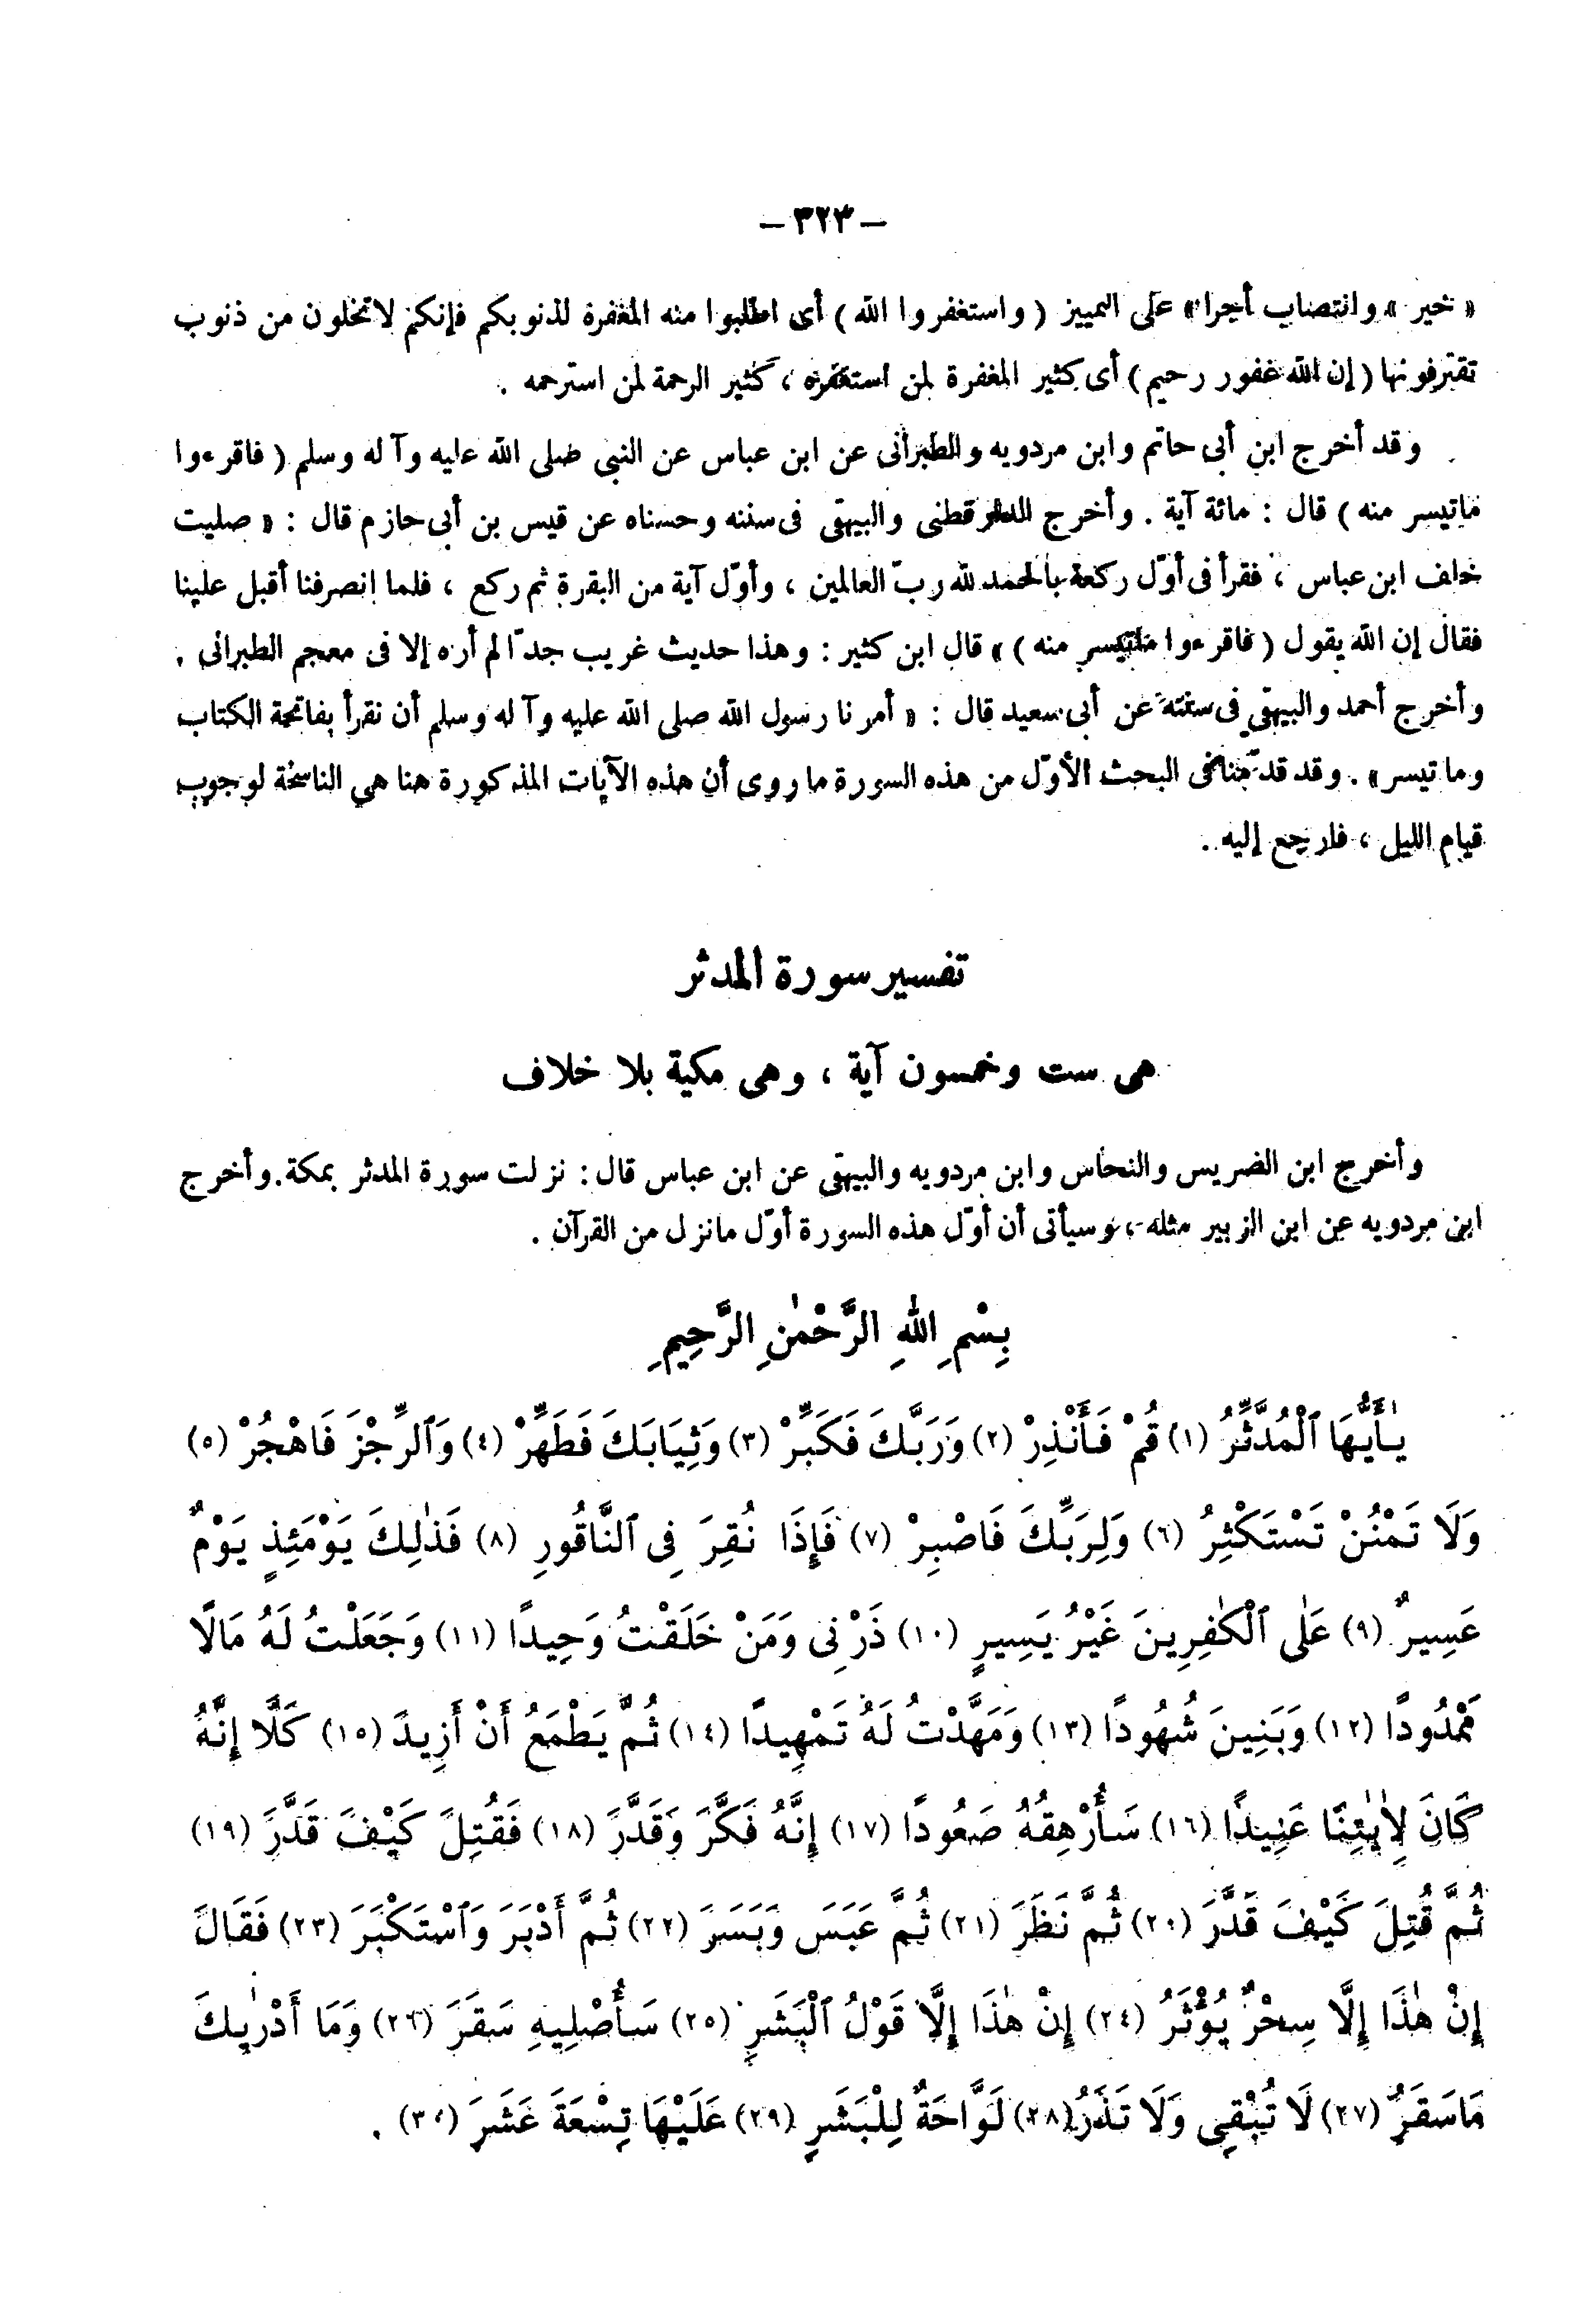 – ٣٢٣ –
« خير » وانتصاب أجرا » على التمييز ( واستغفروا الله ) أى اطلبوا منه المغفرة لذنوبكم فإنكم لا تخلون من ذنوب
تقترفونها ( إن الله غفور رحيم ) أى كثير المغفرة لمن استغفره ، كثير الرحمة لمن استرحمه .
وقد أخرج ابن أبى حاتم وابن مردويه والطبرانى عن ابن عباس عن النبى صلى الله عليه وآله وسلم ( فاقرءوا
ماتيسر منه ) قال : مائة آية . وأخرج الدارقطنى والبيهقى فى سننه وحسناه عن قيس بن أبى حازم قال : « صليت
خلف ابن عباس ، فقرأ فى أوّل ركعة بالحمد لله ربّ العالمين ، وأوّل آية من البقرة ثم ركع ، فلما انصرفنا أقبل علينا
فقال إن الله يقول ( فاقرءوا ماتيسر منه ) » قال ابن كثير : وهذا حديث غريب جدّا لم أره إلا فى معجم الطبرانى .
وأخرج أحمد والبيهقى فى سننه عن أبى سعيد قال : « أمرنا رسول الله صلى الله عليه وآله وسلم أن نقرأ بفاتحة الكتاب
وما تيسر » . وقد قدّمنا فى البحث الأوّل من هذه السورة ما روى أن هذه الآيات المذكورة هنا هى الناسخة لوجوب
قيام الليل ، فارجع إليه .
تفسير سورة المدثر
هى ست وخمسون آية ، وهى مكية بلا خلاف
وأخرج ابن الضريس والنحاس وابن مردويه والبيهقى عن ابن عباس قال : نزلت سورة المدثر بمكة . وأخرج
ابن مردويه عن ابن الزبير مثله ، وسيأتى أن أوّل هذه السورة أوّل مانزل من القرآن .
بِسْمِ اللهِ الرَّحْمٰنِ الرَّحِيمِ
يٰأَيُّهَا ٱلْمُدَّثِّرُ (١) قُمْ فَأَنْذِرْ (٢) وَرَبَّكَ فَكَبِّرْ (٣) وَثِيَابَكَ فَطَهِّرْ (٤) وَٱلرِّجْزَ فَاهْجُرْ (٥)
وَلَا تَمْنُنْ تَسْتَكْثِرُ (٦) وَلِرَبِّكَ فَاصْبِرْ (٧) فَإِذَا نُقِرَ فِى ٱلنَّاقُورِ (٨) فَذٰلِكَ يَوْمَئِذٍ يَوْمٌ
عَسِيرٌ (٩) عَلَى ٱلْكٰفِرِينَ غَيْرُ يَسِيرٍ (١٠) ذَرْنِى وَمَنْ خَلَقْتُ وَحِيدًا (١١) وَجَعَلْتُ لَهُ مَالًا
مَمْدُودًا (١٢) وَبَنِينَ شُهُودًا (١٣) وَمَهَّدْتُ لَهُ تَمْهِيدًا (١٤) ثُمَّ يَطْمَعُ أَنْ أَزِيدَ (١٥) كَلَّا إِنَّهُ
كَانَ لِأٰيٰتِنَا عَنِيدًا (١٦) سَأُرْهِقُهُ صَعُودًا (١٧) إِنَّهُ فَكَّرَ وَقَدَّرَ (١٨) فَقُتِلَ كَيْفَ قَدَّرَ (١٩)
ثُمَّ قُتِلَ كَيْفَ قَدَّرَ (٢٠) ثُمَّ نَظَرَ (٢١) ثُمَّ عَبَسَ وَبَسَرَ (٢٢) ثُمَّ أَدْبَرَ وَٱسْتَكْبَرَ (٢٣) فَقَالَ
إِنْ هٰذَا إِلَّا سِحْرٌ يُؤْثَرُ (٢٤) إِنْ هٰذَا إِلَّا قَوْلُ ٱلْبَشَرِ (٢٥) سَأُصْلِيهِ سَقَرَ (٢٦) وَمَا أَدْرٰيكَ
مَا سَقَرُ (٢٧) لَا تُبْقِى وَلَا تَذَرُ (٢٨) لَوَّاحَةٌ لِلْبَشَرِ (٢٩) عَلَيْهَا تِسْعَةَ عَشَرَ (٣٠) .